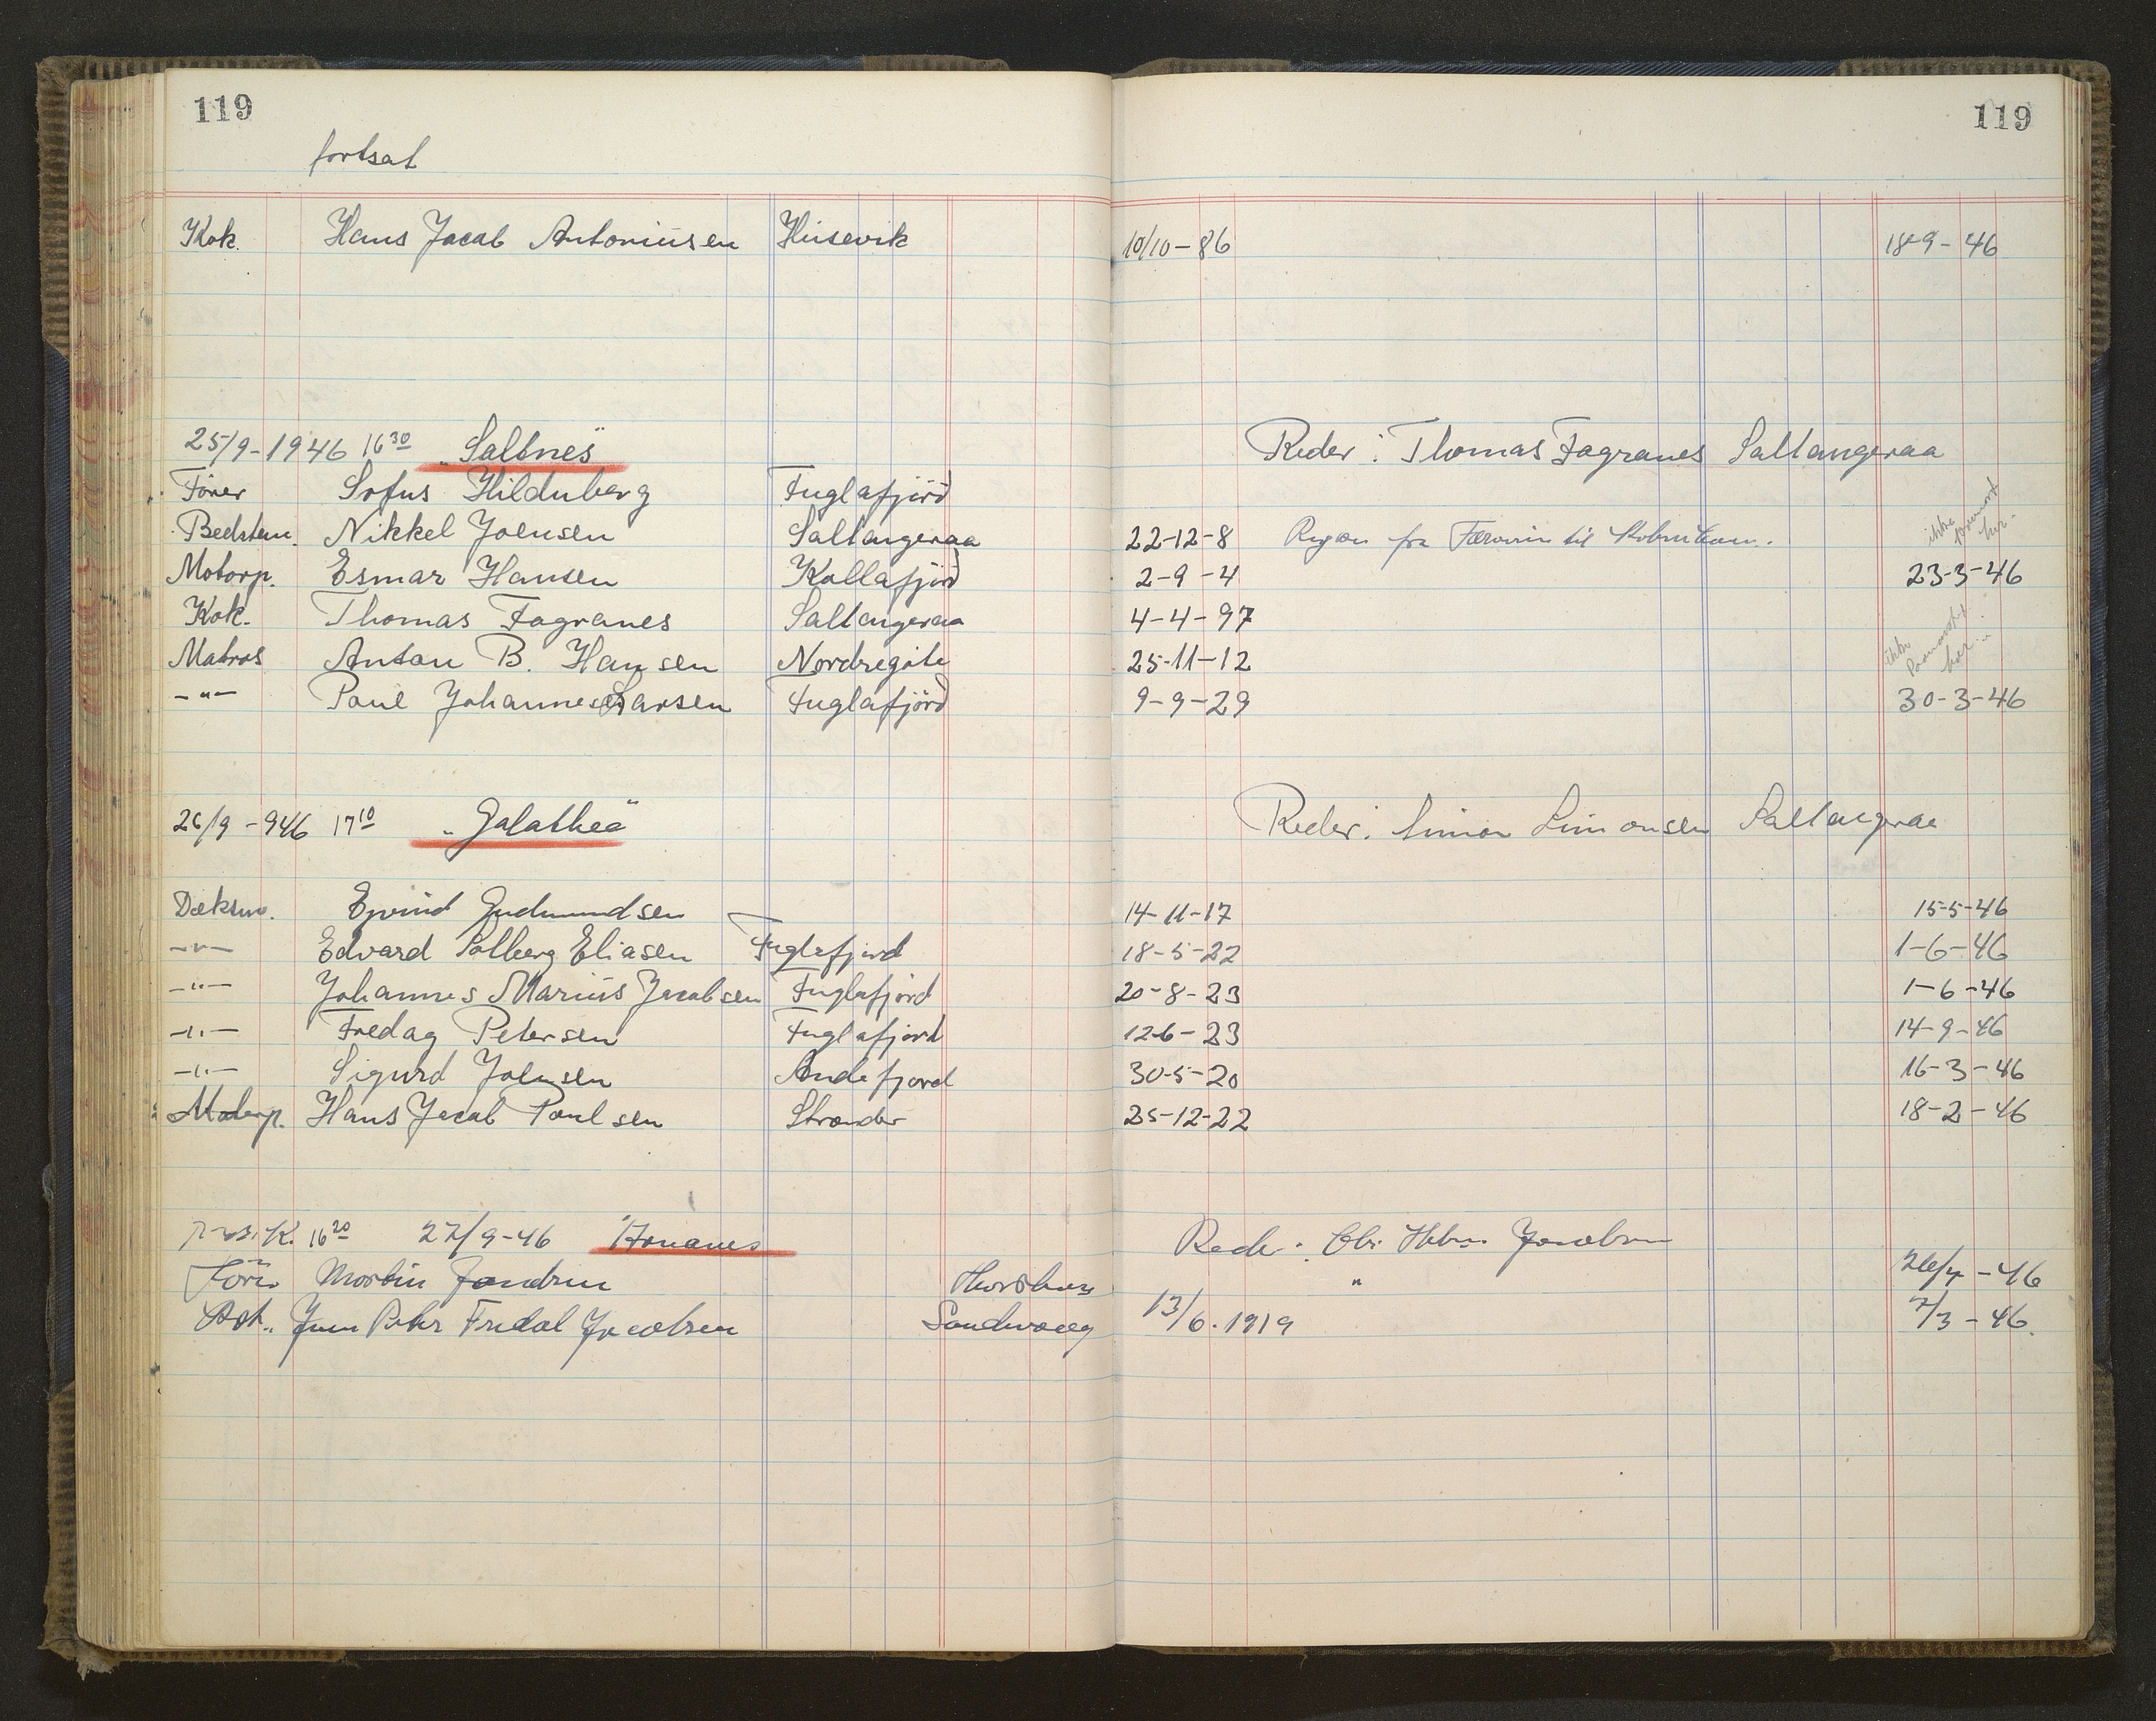 119 119
fortsat
Kok. Hans Jacob Antoniüsen Húsevik 10/10-86 18-9-46
25/9-1946 16 30 "Saltnes" Reder: Thomas Fagranes Saltangeraa
Förer Sofus Hilduberg Fuglafjörd
Bedstem. Nikkel Joensen Saltangeraa 22-12-8 fra Færøerne til ikke paamønst. her.
Motorp. Esmar Hansen Kollafjörd 2-9-4 23-3-46
Kok. Thomas Fagranes Saltangeraa 4-4-97
Matros Anton B. Hansen Nordregöte 25-11-12 ikke paamønst. her.
-"- Poul Johannes Larsen Fuglafjörd 9-9-29 30-3-46
26/9-946 17 10 "Galathea" Reder: Simon Simonsen Saltangeraa
Dæksm. Ejvind Gudmundsen 14-11-17 15-5-46
-"- Edvard Solberg Eliasen Fuglefjord 18-5-22 1-6-46
-"- Johannes Mariüs Jacobsen Fuglafjord 20-8-23 1-6-46
-"- Fredag Petersen Fuglafjord 12-6-23 14-9-46
-"- Sigurd Joensen Andefjord 30-5-20 16-3-46
Motorp. Hans Jacob Poulsen Strender 25-12-22 18-2-46
K. 16 20 27/9-46 Reder: Jacobsen
Förer Morbin Thorshavn " 26/4-46
Peter Fredal Jacobsen Sandvaag 13/6.1919 7/3-46.